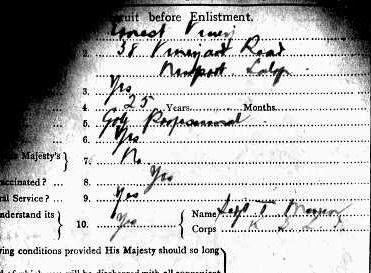 ruit before Enlistment.
1. Ernest
2. 38 Vineyard Road
Newport. Salop
3. Yes
4. 25 Years Months.
5. Golf Professional
6. Yes
his Majesty's } 7. No
accinated? ... 8. Yes
ral Service? ... 9. Yes
nderstand its } 10. Yes Name Sergt T.
Corps
ving conditions provided His Majesty should so long